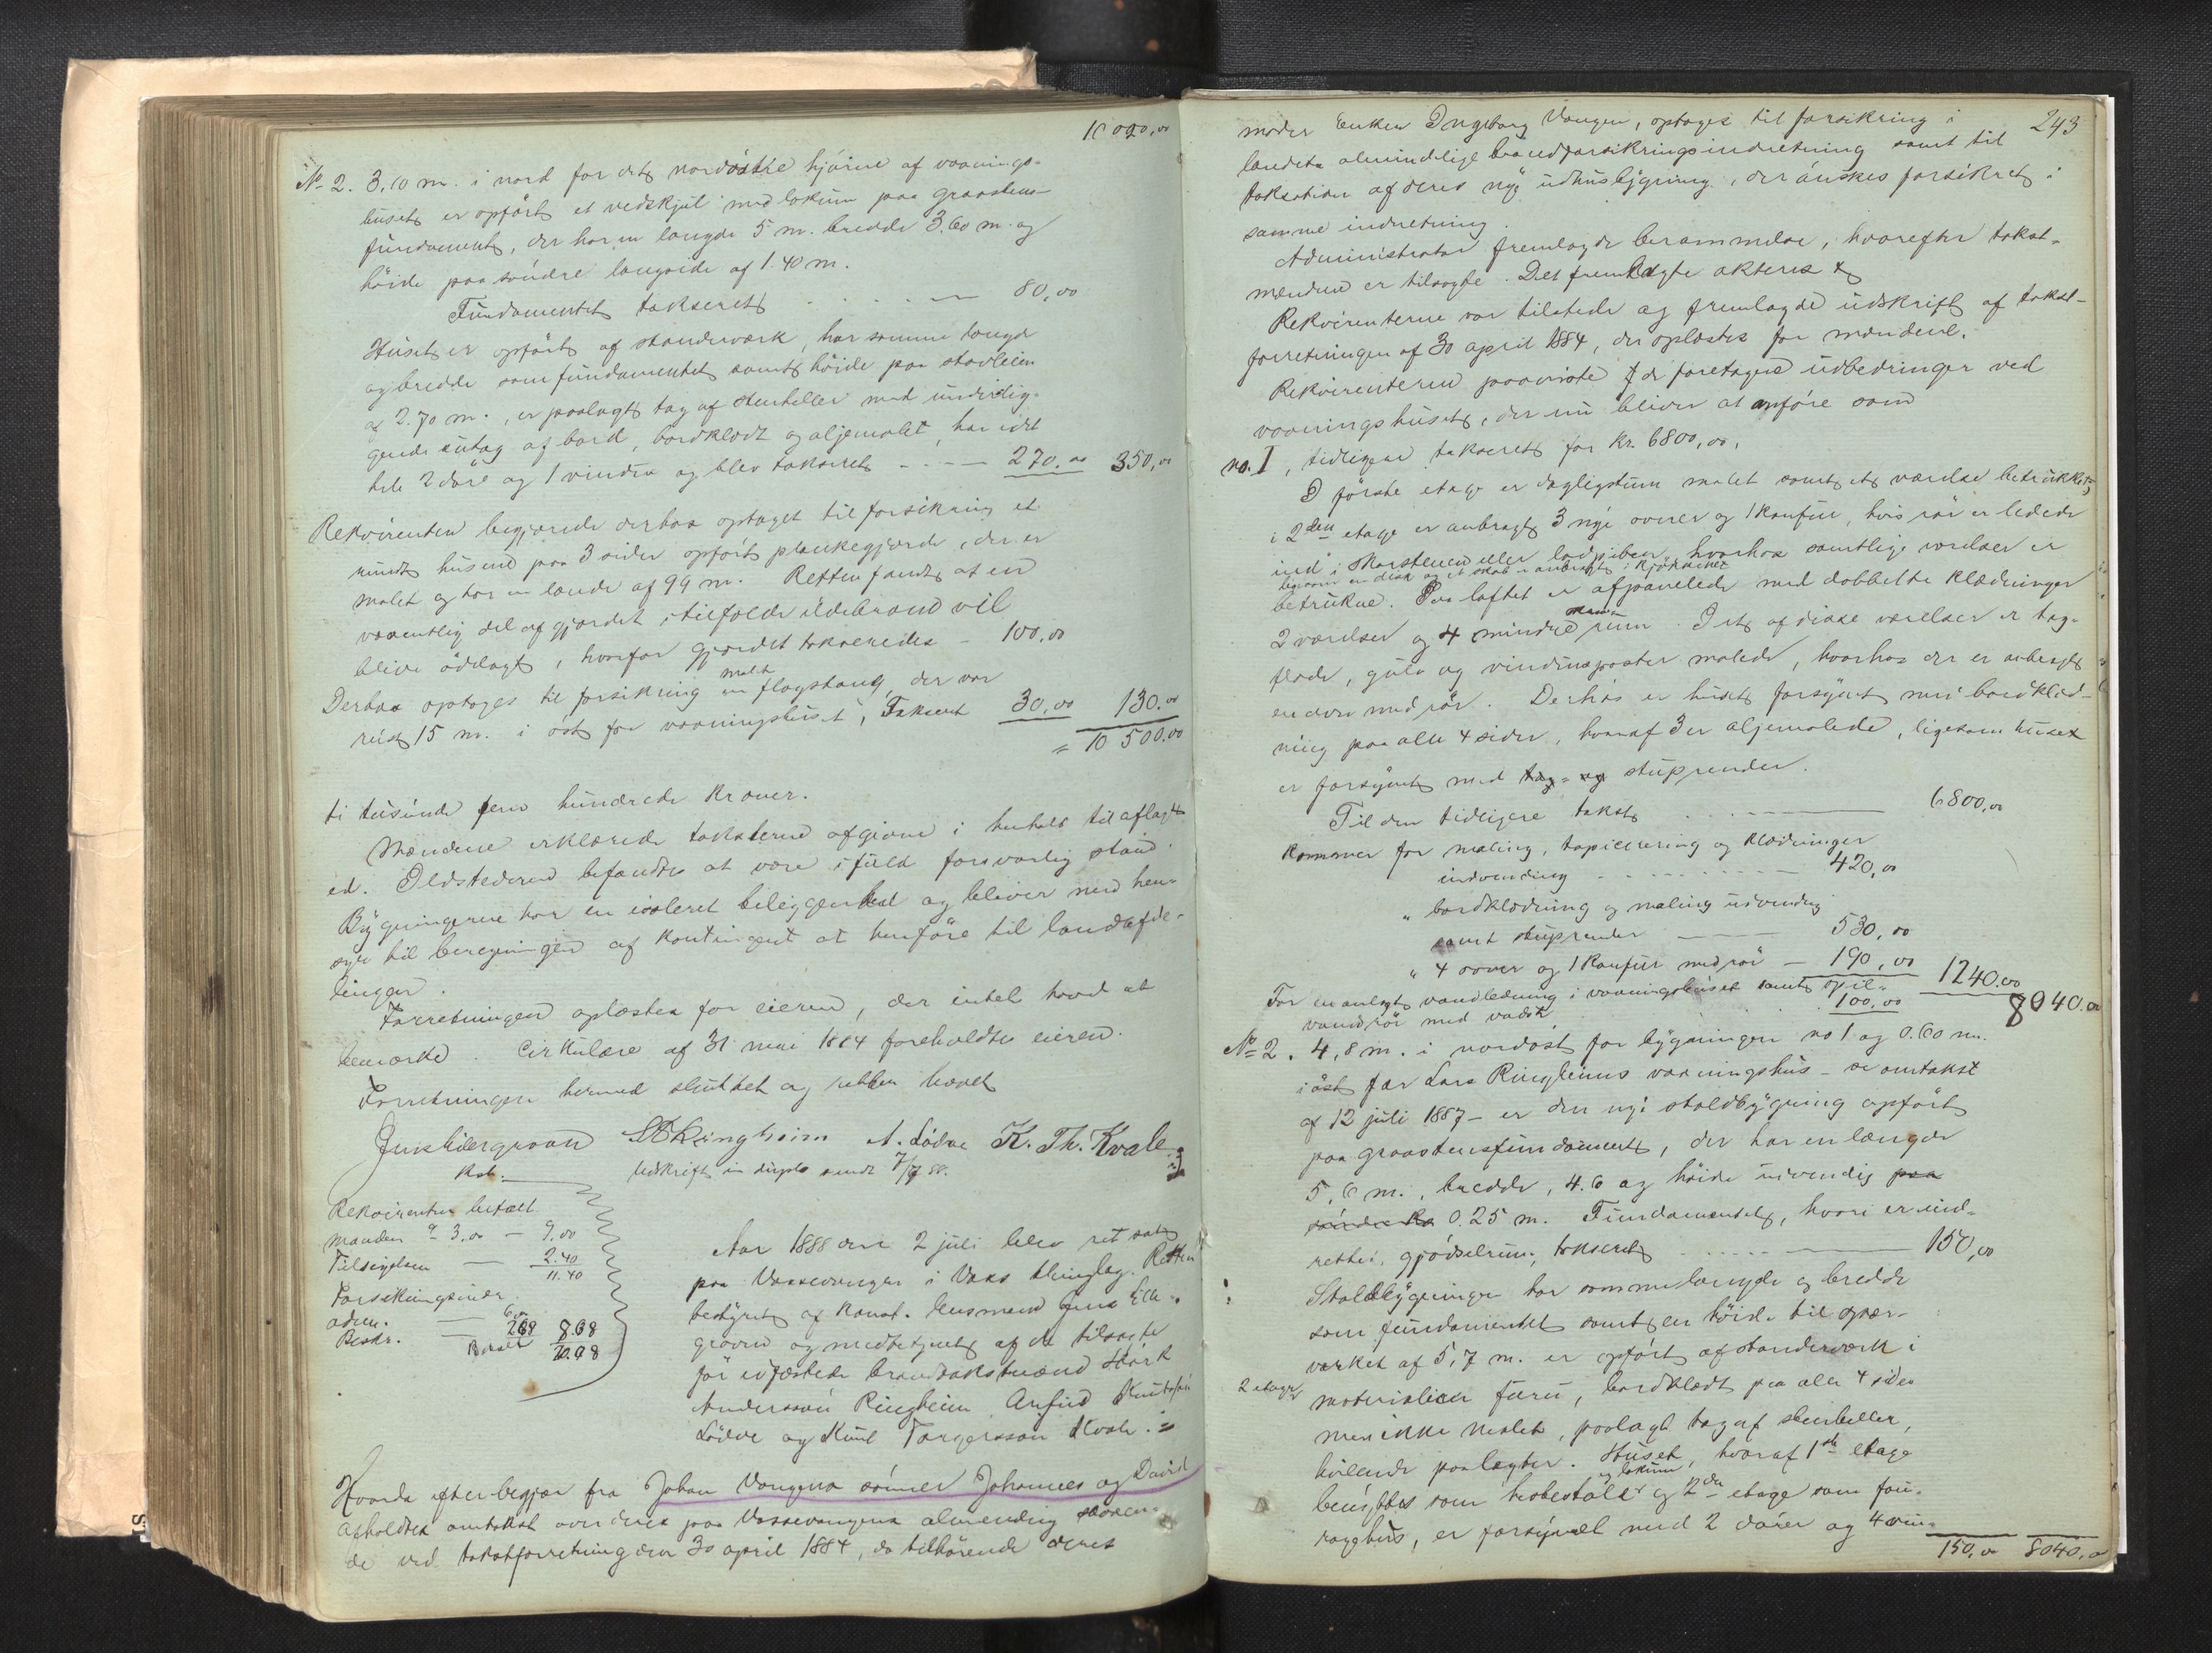 10 020,00
№ 2. 3,10 m. i nord for det nordöstre hjörne af vaanings-
huset er opfört et vedskjul med lokum paa graastens-
fundament, der har en længde 5 m. bredde 3.60 m. og
höide paa söndre langside af 1.40 m.
Fundamentet takseret . . . . . — 80,00
Huset er opfört af standerværk, har samme længde
og bredde som fundamentet samt höide paa stavleien
af 2.70 m., er paalagt tag af stenheller med underlig-
gende sutag af bord, bordklædt og oljemalet, har i det
hele 2 döre og 1 vindu og blev takseret - - - — 270.00 350,00
Rekvirenten begjærede derhos optaget til forsikring et
rundt husene paa 3 sider opfört plankegjærde, der er
malet og har en længde af 99 m. Retten fandt at en
væsentlig del af gjærdet i tilfælde ildebrand vil
blive ödelagt, hvorfor gjærdet takseredes — 100,00
Derhos optages til forsikring en malt flagstang, der var
reist 15 m. i öst for vaaningshuset, Takseret 30,00 130.00
= 10 500.00
ti tusinde fem hundrede kroner.
Mændene erklærede taksterne afgivne i henhold til aflagt
ed. Ildstederne befandtes at være i fuld forsvarlig stand.
Bygningerne har en isoleret beliggenhed og bliver med hen-
syn til beregningen af kontingent at henföre til landafde-
lingen.
Forretningen oplæstes for eieren, der intet havde at
bemærke. Cirkulære af 31 mai 1884 foreholdtes eieren.
Forretningen hermed sluttet og retten hævet
Jens Ellergraven SA Ringheim A. Lödve K. Th. Kvale
kst. Udskrift in duplo sendt 7/7 88.
Rekvirenten betalt
Manden a 3,00 — 9,00
Tilsigelsen — 2.40
11.40
Forsikringsindr.
adm. — 6,00
Beskr. — 2.68 8.68
Betalt 20.08
Aar 1888 den 2 juli blev ret sat
paa Vossevangen i Voss thinglag. Retten
bestyret af konst. lensmand Jens Elle-
graven og medbetjent af de tilsagte
för edfæstede brandtakstmænd Störk
Anderssön Ringheim, Anfind Knutsön
Lödve og Knut Torgerssön Kvale. =
Hvorda efter begjær fra Johan Vangens sönner Johannes og David
afholdtes omtakst over deres paa Vossevangens almending staaen-
de ved takstforretning den 30 april 1884, da tilhörende deres
243
moder Enken Ingeborg Vangen, optages til forsikring i
landets almindelige brandforsikringsindretning samt til
taksation af deres nye udhusbygning, der önskes forsikret i
samme indretning.
Administrator fremlagde berammelse, hvorefter takst-
mændene er tilsagte. Det fremlagte akteres
Rekvirenterne var tilstede og fremlagde udskrift af takst-
forretningen af 30 april 1884, der oplæstes for mændene.
Rekvirenterne paaviste de foretagne udbedringer ved
vaaningshuset, der nu bliver at anföre som
no. I, tidligere takseret for Kr. 6800,00.
I förste etage er dagligstuen malet samt et værelse betrukket,
i 2den etage er anbragt 3 nye ovner og 1 komfur, hvis rör er ledede
ind i skorstenen eller lodpiben, hvorhos samtlige værelser er
ligesom en disk og et skab er anbragt i kjökkenet
betrukne. Paa loftet er afpanelede med dobbelte klædninger
2 værelser og 4 mindre rum. I et af disse værelser er tag-
flade, gulv og vinduesposter malede, hvorhos der er anbragt
en ovn med rör. Derhos er huset forsynet med bordklæd-
ning paa alle 4 sider, hvoraf 3 er oljemalede, ligesom huset
er forsynet med tag- og stuprender.
Til den tidligere takst . . . . — 6800,00
kommer for maling, tapicering og klædninger
indvendig - - - - - - - - — 420,00
" bordklædning og maling udvendig
samt stuprender — 530,00
" 4 ovner og 1 komfur med rör — 190,00 1240.00
For en anlagt vandledning i vaaningshuset samt spil-
vandsrör med vadsk 100,00 8040.00
№ 2. 4,8 m. i nordöst for bygningen no 1 og 0.60 m.
i öst for Lars Ringheims vaaningshus – se omtakst
af 12 juli 1887 – er den nye staldbygning opfört
paa graastensfundament, der har en længde
5,6 m., bredde, 4.6 og höide udvendig paa
söndre 0.25 m. Fundamentet, hvori er ind-
rettet gjödselrum, takseret . . . . . — 150,00
Staldbygningen har samme længde og bredde
som fundamentet samt en höide til spær-
værket af 5,7 m. er opfört af standerværk i
2 etager
materialier furu, bordklædt paa alle 4 sider
men ikke malet, paalagt tag af stenheller,
hvilende paa lægter. Huset, hvoraf 1ste etage
benyttes som hestestald og lokum og 2den etage som fou-
ragehus, er forsynet med 2 dörer og 4 vin-
150,00 8040,00